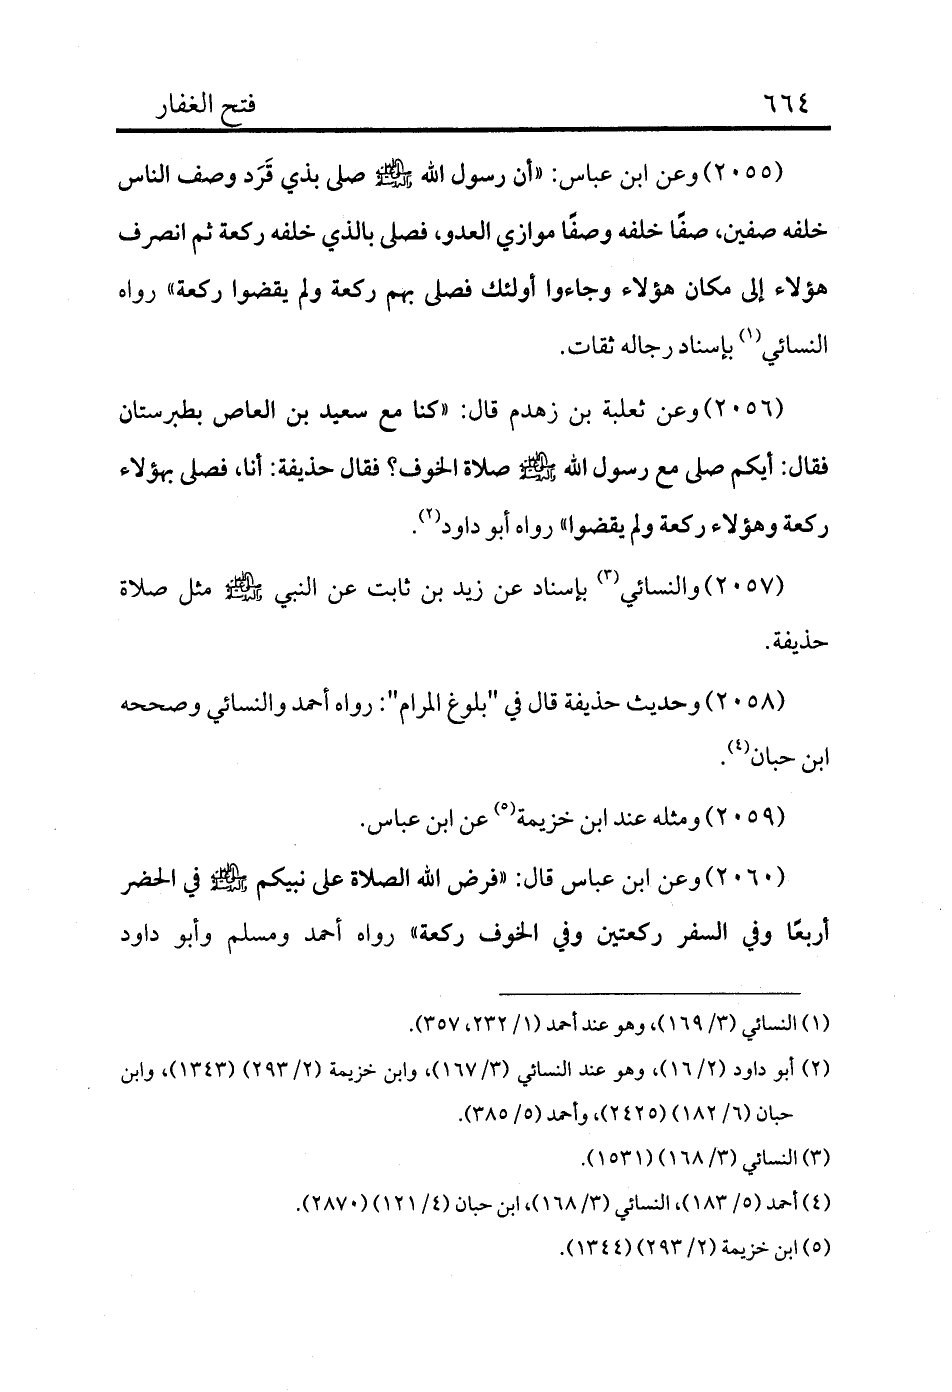 ٦٦٤ فتح الغفار
(٢٠٥٥) وعن ابن عباس: «أن رسول الله ﷺ صلى بذي قَرَد وصف الناس
خلفه صفين، صفًا خلفه وصفًا موازي العدو، فصلى بالذي خلفه ركعة ثم انصرف
هؤلاء إلى مكان هؤلاء وجاءوا أولئك فصلى بهم ركعة ولم يقضوا ركعة» رواه
النسائي(١) بإسناد رجاله ثقات.
(٢٠٥٦) وعن ثعلبة بن زهدم قال: «كنا مع سعيد بن العاص بطبرستان
فقال: أيكم صلى مع رسول الله ﷺ صلاة الخوف؟ فقال حذيفة: أنا، فصلى بهؤلاء
ركعة وهؤلاء ركعة ولم يقضوا» رواه أبو داود(٢).
(٢٠٥٧) والنسائي(٣) بإسناد عن زيد بن ثابت عن النبي ﷺ مثل صلاة
حذيفة.
(٢٠٥٨) وحديث حذيفة قال في "بلوغ المرام": رواه أحمد والنسائي وصححه
ابن حبان(٤).
(٢٠٥٩) ومثله عند ابن خزيمة(٥) عن ابن عباس.
(٢٠٦٠) وعن ابن عباس قال: «فرض الله الصلاة على نبيكم ﷺ في الحضر
أربعًا وفي السفر ركعتين وفي الخوف ركعة» رواه أحمد ومسلم وأبو داود
(١) النسائي (٣/ ١٦٩)، وهو عند أحمد (١/ ٢٣٢، ٣٥٧).
(٢) أبو داود (٢/ ١٦)، وهو عند النسائي (٣/ ١٦٧)، وابن خزيمة (٢/ ٢٩٣) (١٣٤٣)، وابن
حبان (٦/ ١٨٢) (٢٤٢٥)، وأحمد (٥/ ٣٨٥).
(٣) النسائي (٣/ ١٦٨) (١٥٣١).
(٤) أحمد (٥/ ١٨٣)، النسائي (٣/ ١٦٨)، ابن حبان (٤/ ١٢١) (٢٨٧٠).
(٥) ابن خزيمة (٢/ ٢٩٣) (١٣٤٤).